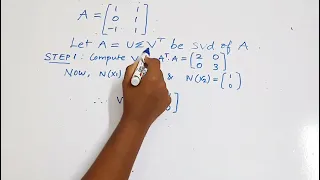 A = [1 1
0 1
-1 1]
Let A = UΣVᵀ be svd of A.
STEP1: Compute V AᵀA = [2 0
0 3]
Now, N(λ1) & N(λ2) = (1
0)
∴ V